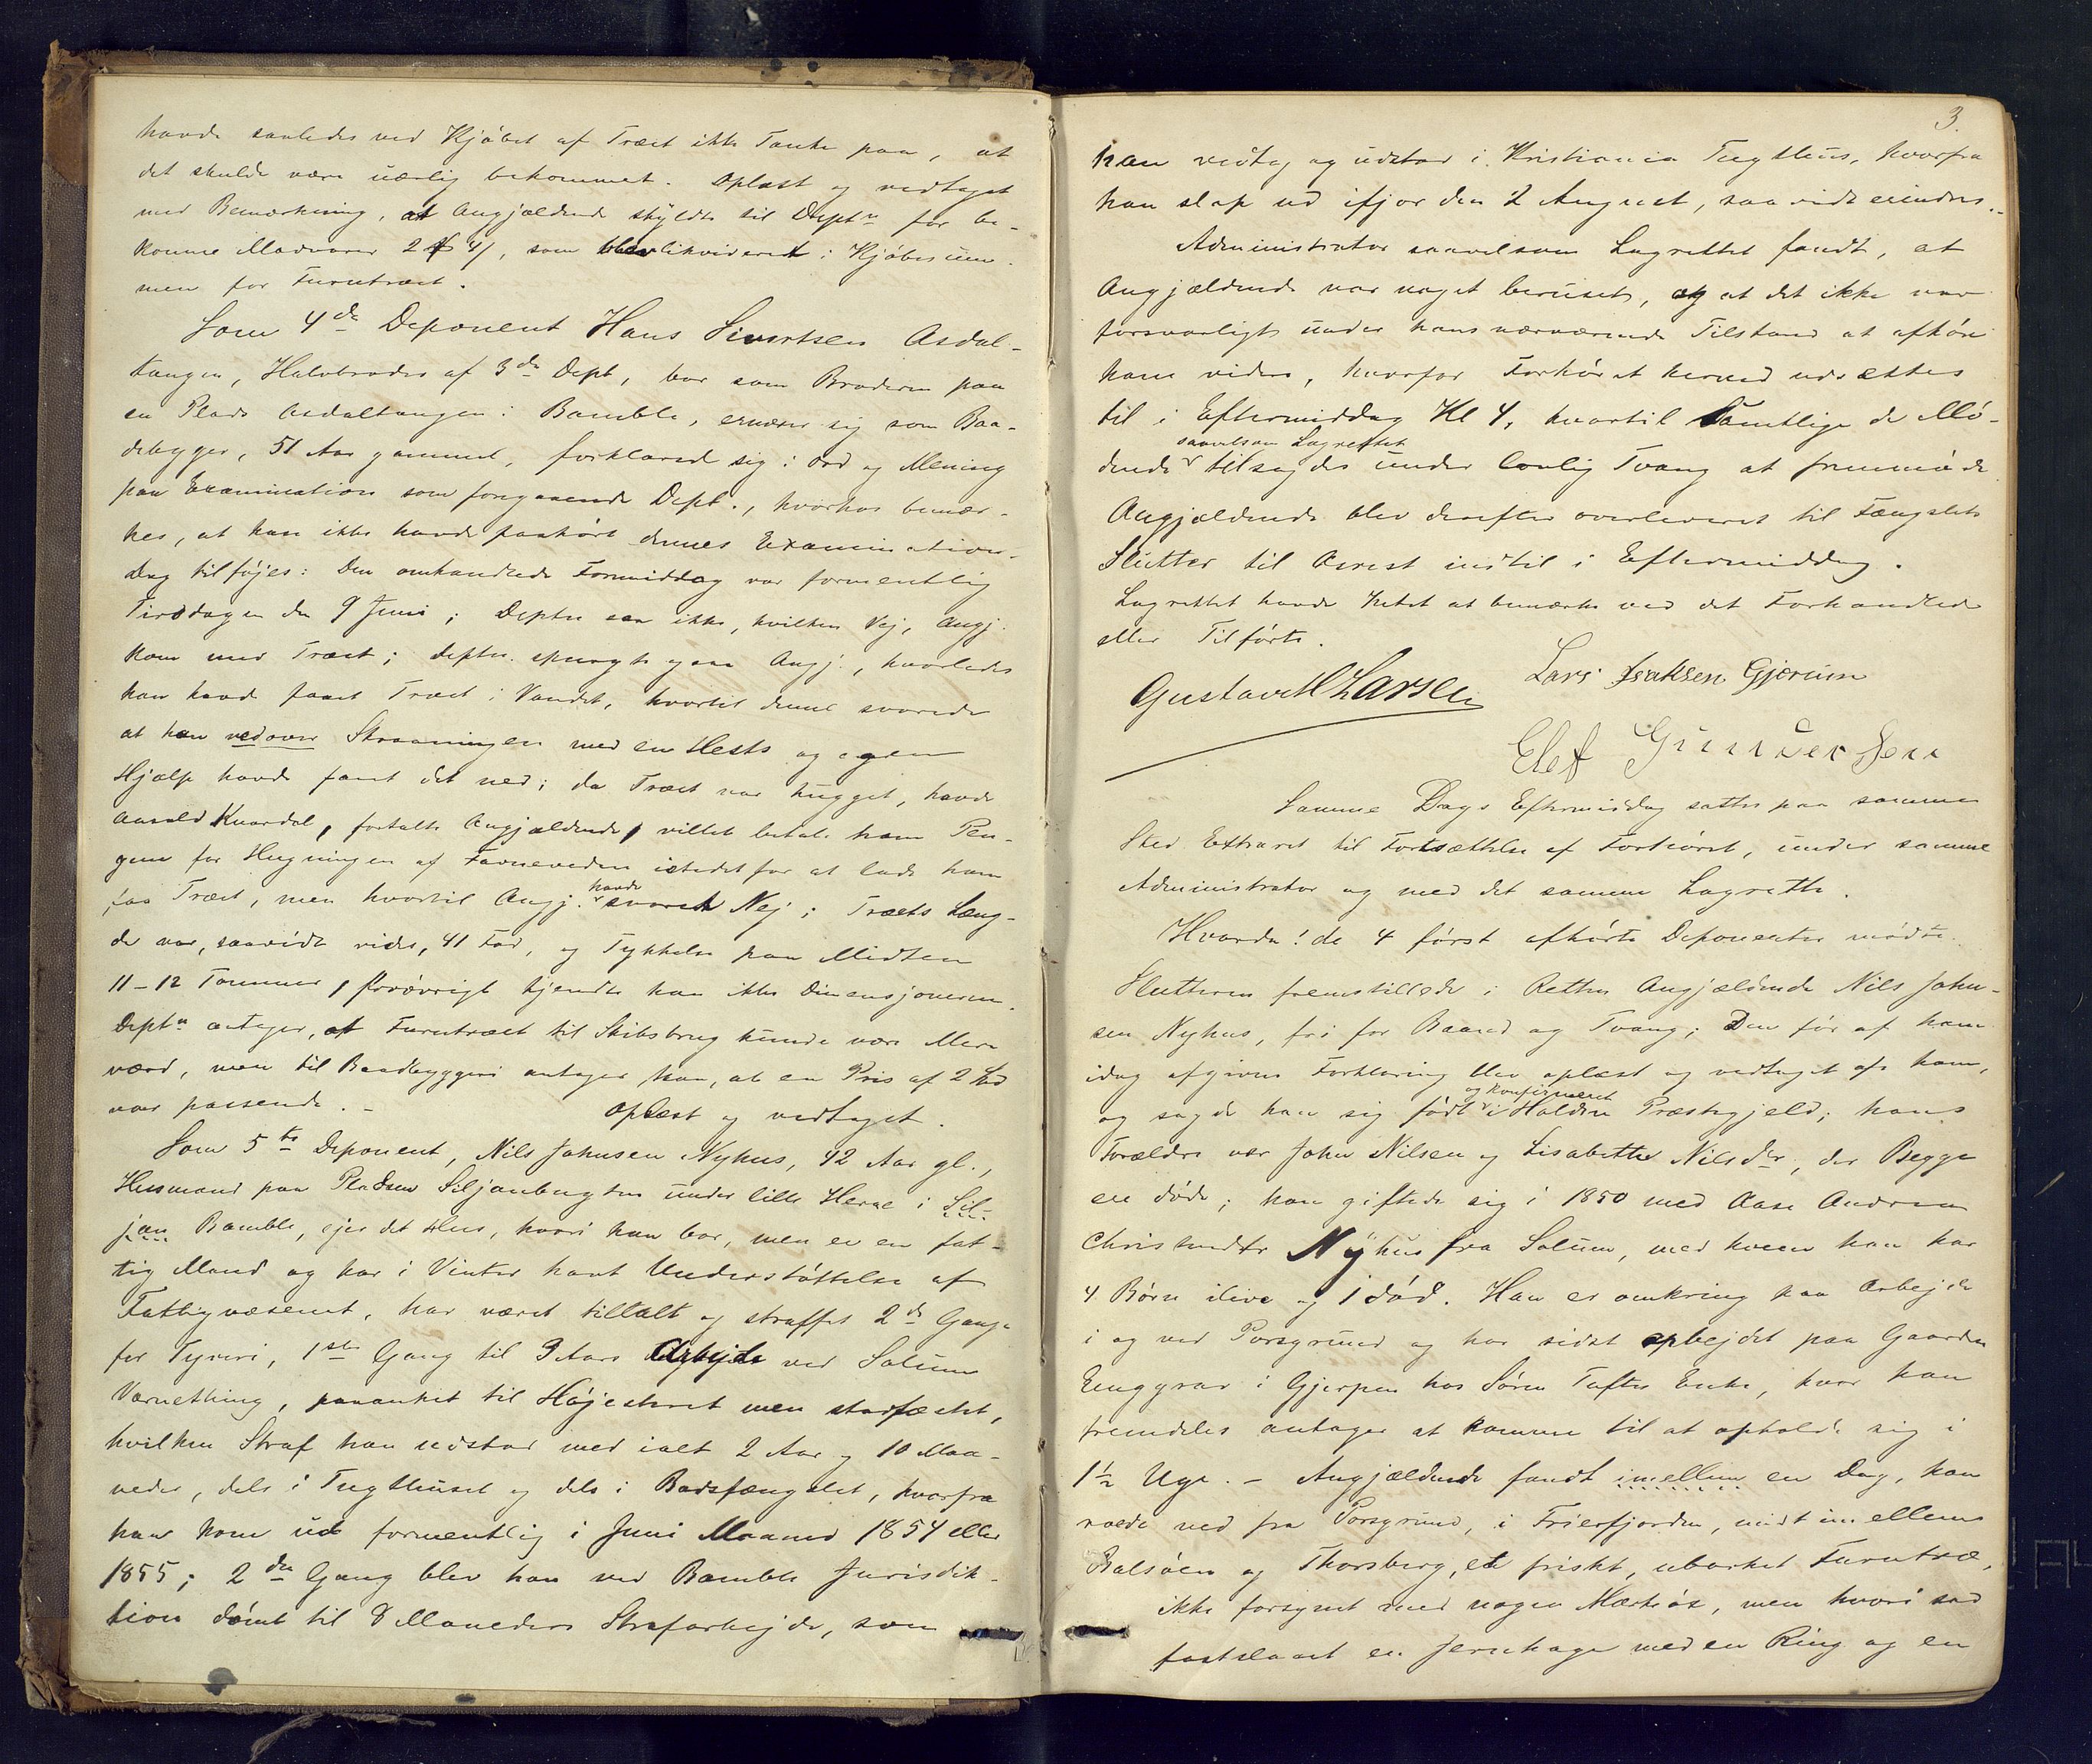 havde saaledes ved Kjøbet af Træet ikke Tanke paa, at
det skulde være uærlig bekommet. Oplæst og vedtaget
med Bemærkning, at Angjældende skyldte til Deptn for be-
komne Madvarer 2 , som blev likvideret i Kjøbesum-
men for Furutræet.
Som 4de Deponent Hans Sivertsen Asdal-
tangen, Halvbroder af 3die Dept, bor som Broderen paa
en Plads Asdaltangen i Bamble, ernærer sig som Baa-
debygger, 51 Aar gammel, forklared sig i Ord og Mening
paa Examination som foregaaende Dept., hvorhos bemær-
kes, at han ikke havde paahørt dennes Examination.
Dog tilføjes: Den omhandlede Formiddag var formentlig
Tirsdagen den 9 Juni; Deptn saa ikke, hvilken Vej, Angj.
kom med Træet; deptn. spurgte ogsaa Angj., hvorledes
han havde faaet Træet i Vandet, hvortil denne svarede
at han nedover Skraaningen med en Hests og egen
Hjælp havde faaet det ned; da Træet var hugget, havde
Aasold Kvardal, fortalte Angjældende, villet betale ham Pen-
gene for Hugningen af Favneveden istedetfor at lade ham
faa Træet, men hvortil Angj. havde svaret Nej; Træets Læng-
de var, saavidt vides, 41 Fod, og Tykkelse paa Midten
11-12 Tommer, forøvrigt kjendte han ikke Dimensjonerne.
Deptn antager, at Furutræet til Skibsbrug kunde være Mere
værd, men til Baadbyggeri antager han, at en Pris af 2 Spd
var passende. – Oplæst og vedtaget.
Som 5te Deponent, Nils Johnsen Nyhus, 42 Aar gl.,
Husmand paa Pladsen Siljanbugten under lille Herre i Sil-
jan Bamble, ejer det Hus, hvori han bor, men er en fat-
tig Mand og har i Vinter havt Understøttelse af
Fattigvæsenet, har været tiltalt og straffet 2de Gange
for Tyveri, 1ste Gang til 3 Aars Arbejde ved Solum
Værnething, paaanket til Højesteret men stadfæstet,
hvilken Straf han udstod med ialt 2 Aar og 10 Maa-
neder, dels i Tugthuset og dels i Bodsfængslet, hvorfra
han kom ud formentlig i Juni Maaned 1854 eller
1855; 2den Gang blev han ved Bamble Jurisdik-
tion dømt til 8 Maaneders Strafarbejde, som
3.
han vedtog og udstod i Kristiania Tugthus, hvorfra
han slap ud ifjor den 2 August, saavidt erindres.
Administrator saavelsom Lagrettet fandt, at
Angjældende var noget beruset, og at det ikke var
forsvarligt under hans nærværende Tilstand at afhøre
ham videre, hvorfor Forhøret herved udsættes
til i Eftermiddag Kl 4, hvortil Samtlige de Mø-
dende saavelsom Lagrettet tilsagdes under lovlig Tvang at fremmøde
Angjældende blev derefter overleveret til Fængslets
Slutter til Arrest indtil i Eftermiddag.
Lagrettet havde Intet at bemærke ved det Forhandlede
eller Tilførte.
Gustav Larsen Lars Isaksen Gjerum
Elef Gundersen
Samme Dags Eftermiddag sattes paa samme
Sted Extraret til Fortsættelse af Forhøret, under samme
Administrator og med det samme Lagrette.
Hvorda! de 4 først afhørte Deponenter mødte.
Slutteren fremstillede i Retten Angjældende Nils John-
sen Nyhus, fri for Baand og Tvang; Den før af ham
idag afgivne Forklaring blev oplæst og vedtaget af ham,
og sagde han sig født og konfirmeret i Holden Præstegjeld; hans
Forældre var John Nilsen og Lisabethe Nilsdtr, der Begge
ere døde; han giftede sig i 1850 med Aase Andrea
Christensdtr Nyhus fra Solum, med hvem han har
4 Børn ilive og 1 død. Han er omkring paa Arbejde
i og ved Porsgrund og har sidst arbejdet paa Gaarden
Enggrav i Gjerpen hos Søren Toftes Enke, hvor han
fremdeles antager at komme til at opholde sig i
1½ Uge. – Angjældende fandt imellem en Dag, han
roede ned fra Porsgrund, i Frierfjorden, midt imellem
Balsøen og Thorsberg, et friskt, ubarket Furutræ,
ikke forsynet med nogen Mærkeøx, men hvori sad
fastslaaet en Jernhage med en Ring og en